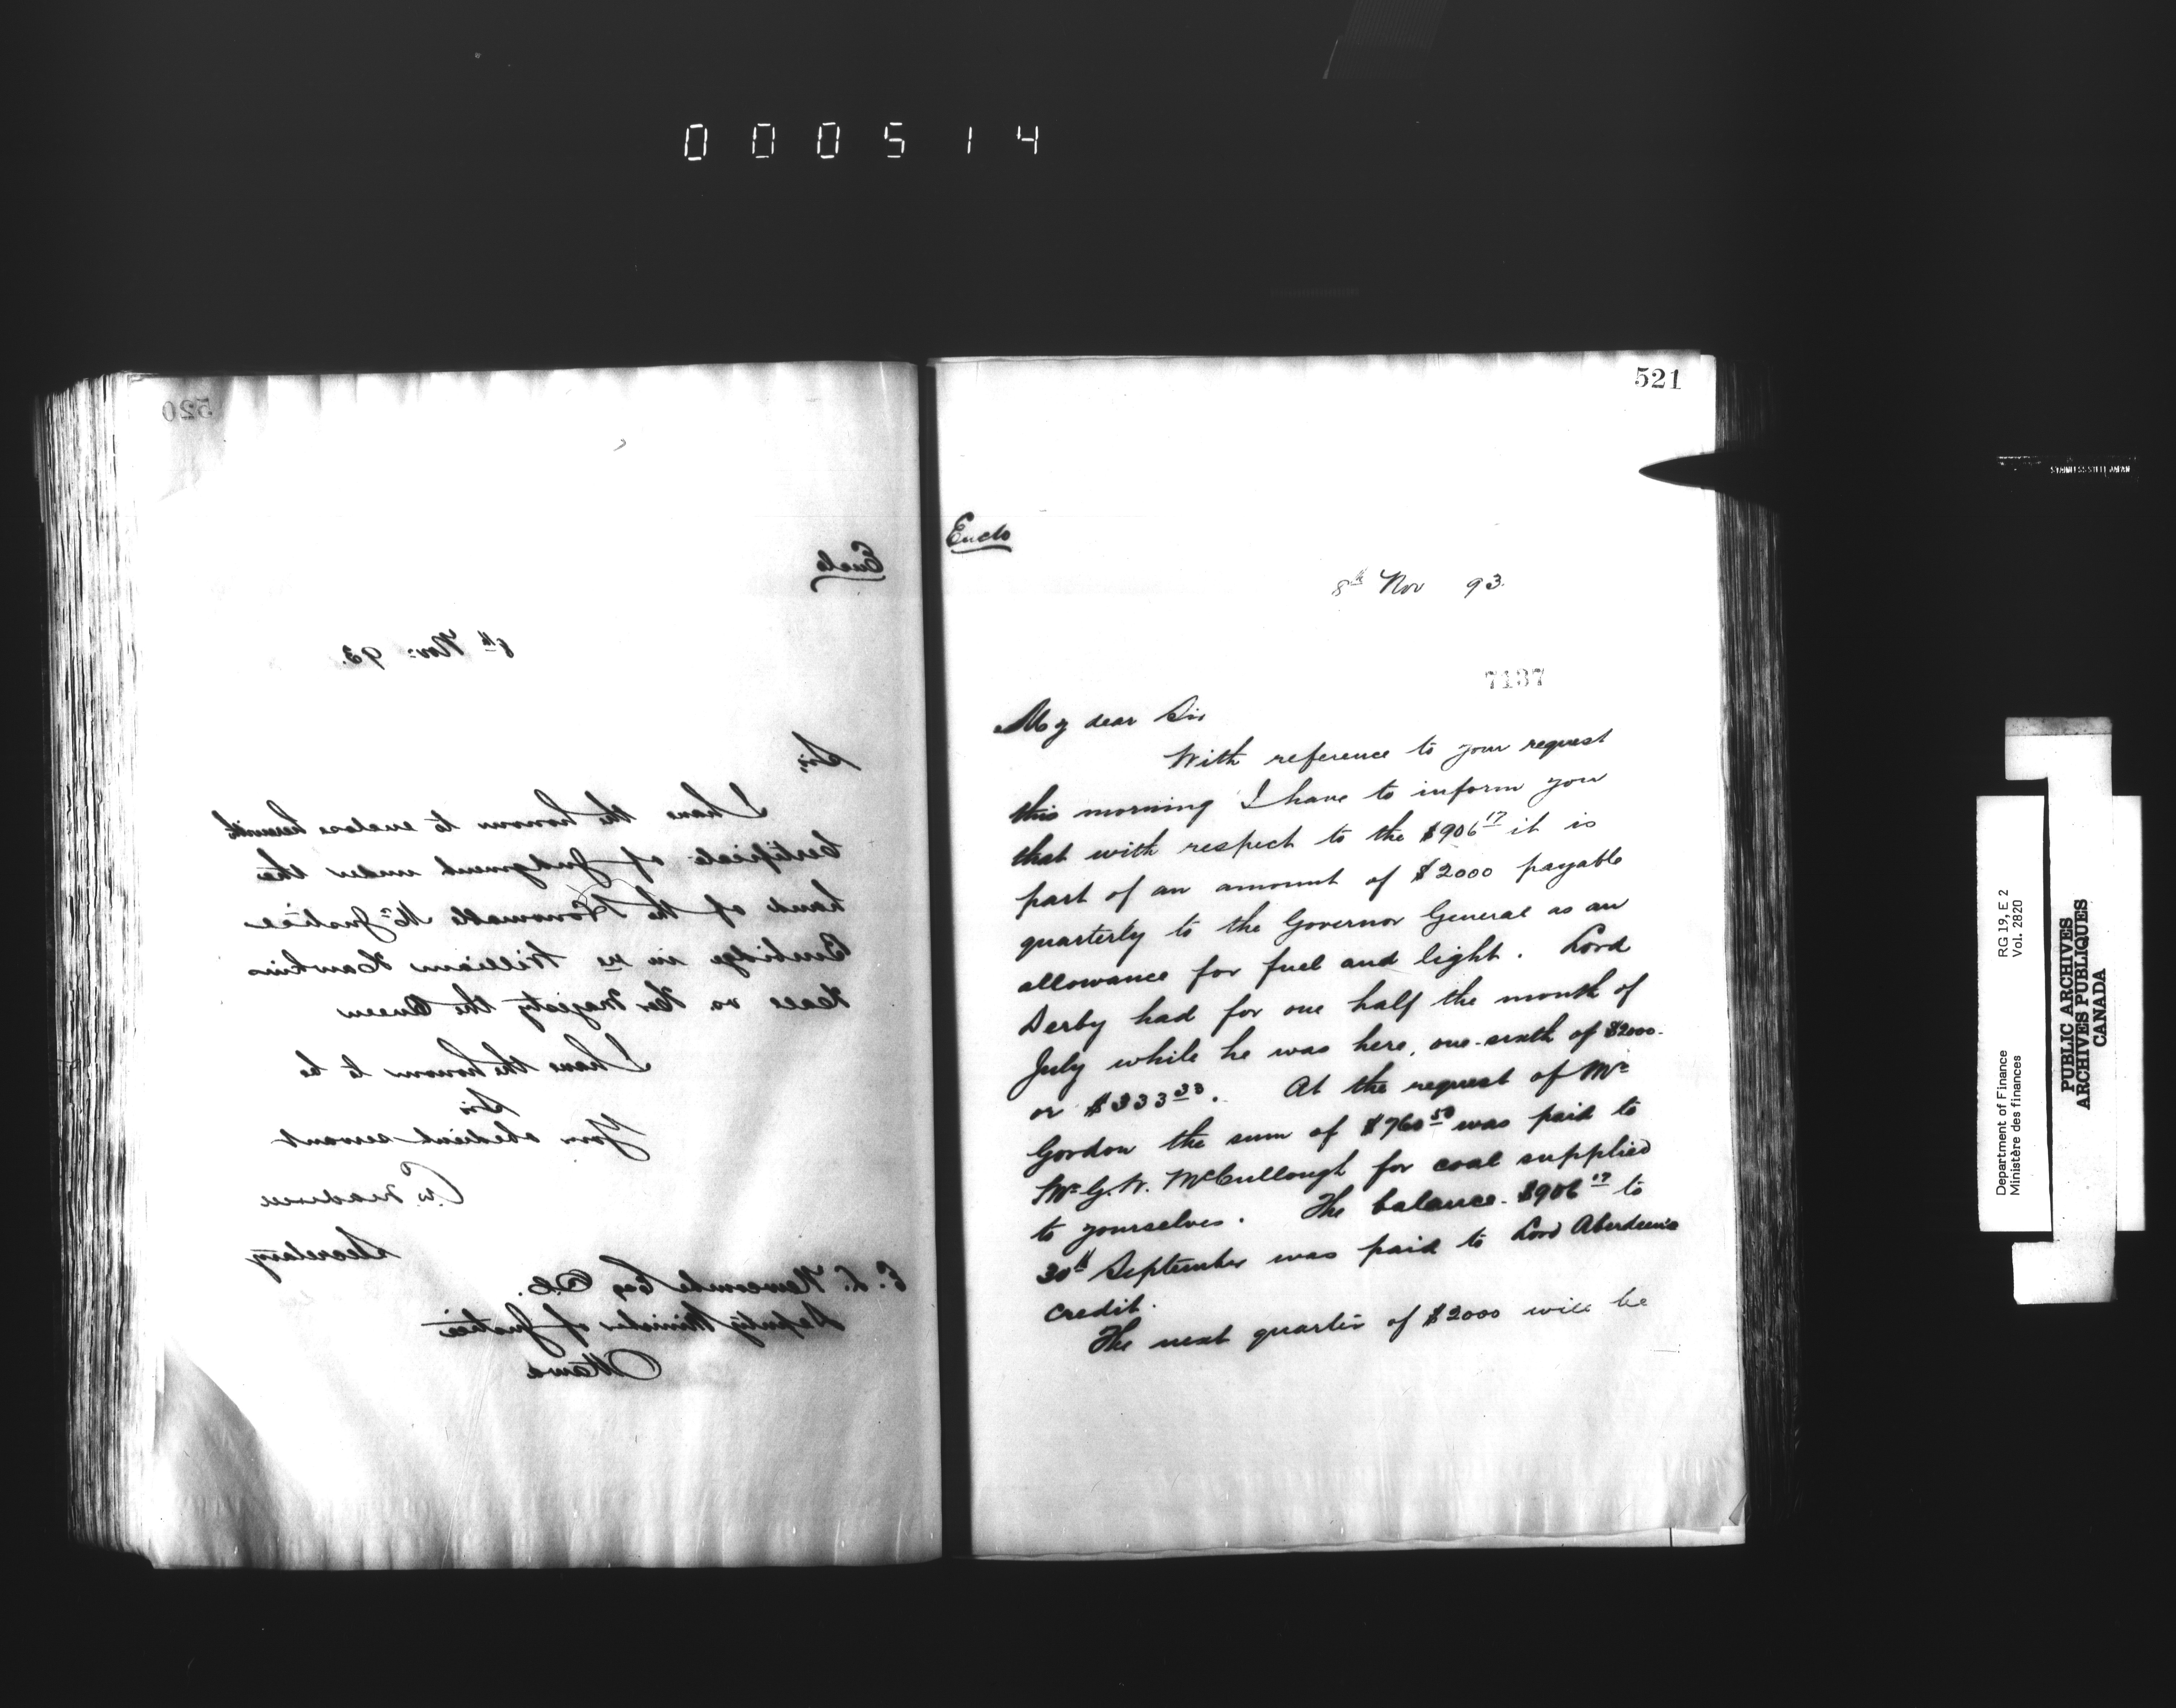 000514
520
Enclo
8th Nov: 93.
Sir,
I have the honour to enclose herewith
Certificate of Judgment under the
hand of the Honourable Mr Justice
Burbidge in re William Hawkins
vs. Her Majesty the Queen
I have the honour to be
Sir
Your obedient servant
Secretary
E. L. Newcombe Esq Q.C.
Deputy Minister of Justice
Ottawa
521
Enclo
8th Nov 93.
7137
My dear Sir
With reference to your request
this morning I have to inform you
that with respect to the $906 17 it is
part of an amount of $2000 payable
quarterly to the Governor General as an
allowance for fuel and light. Lord
Derby had for one half the month of
July while he was here, one-sixth of $2000-
or $333 33. At the request of Mr
Gordon the sum of $760 50 was paid to
Mr G. W. McCullough for coal supplied
to yourselves. The balance $906 17 to
30th September was paid to Lord Aberdeen's
credit.
The next quarter of $2000 will be
STAINLESS STEEL JAPAN
Department of Finance RG 19, E 2
Ministère des finances Vol. 2820
PUBLIC ARCHIVES
ARCHIVES PUBLIQUES
CANADA